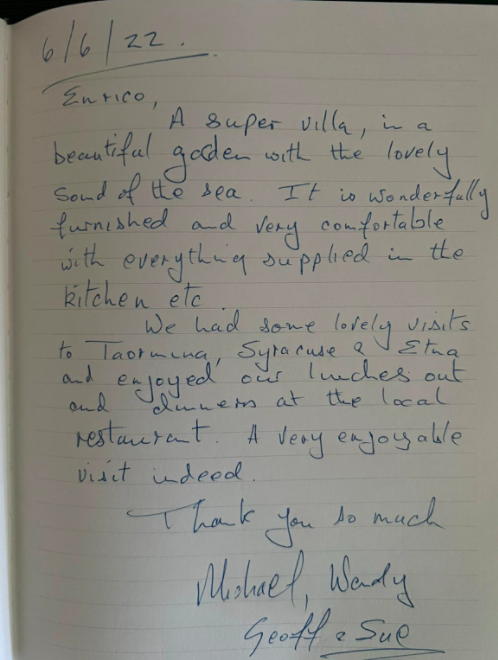 6/6/22.
Enrico,
A super villa, in a
beautiful garden with the lovely
sound of the sea. It is wonderfully
furnished and very comfortable
with everything supplied in the
kitchen etc
We had some lovely visits
to Taormina, Syracuse & Etna
and enjoyed our lunches out
and dinners at the local
restaurant. A very enjoyable
visit indeed.
Thank you so much
Michael, Wendy
Geoff & Sue